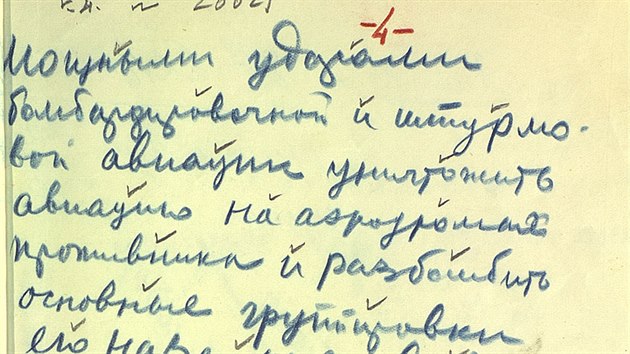 -4-
Мощными ударами
бомбардировочной и штурмо-
вой авиации уничтожить
авиацию на аэродромах
противника и разбомбить
основные группировки
его